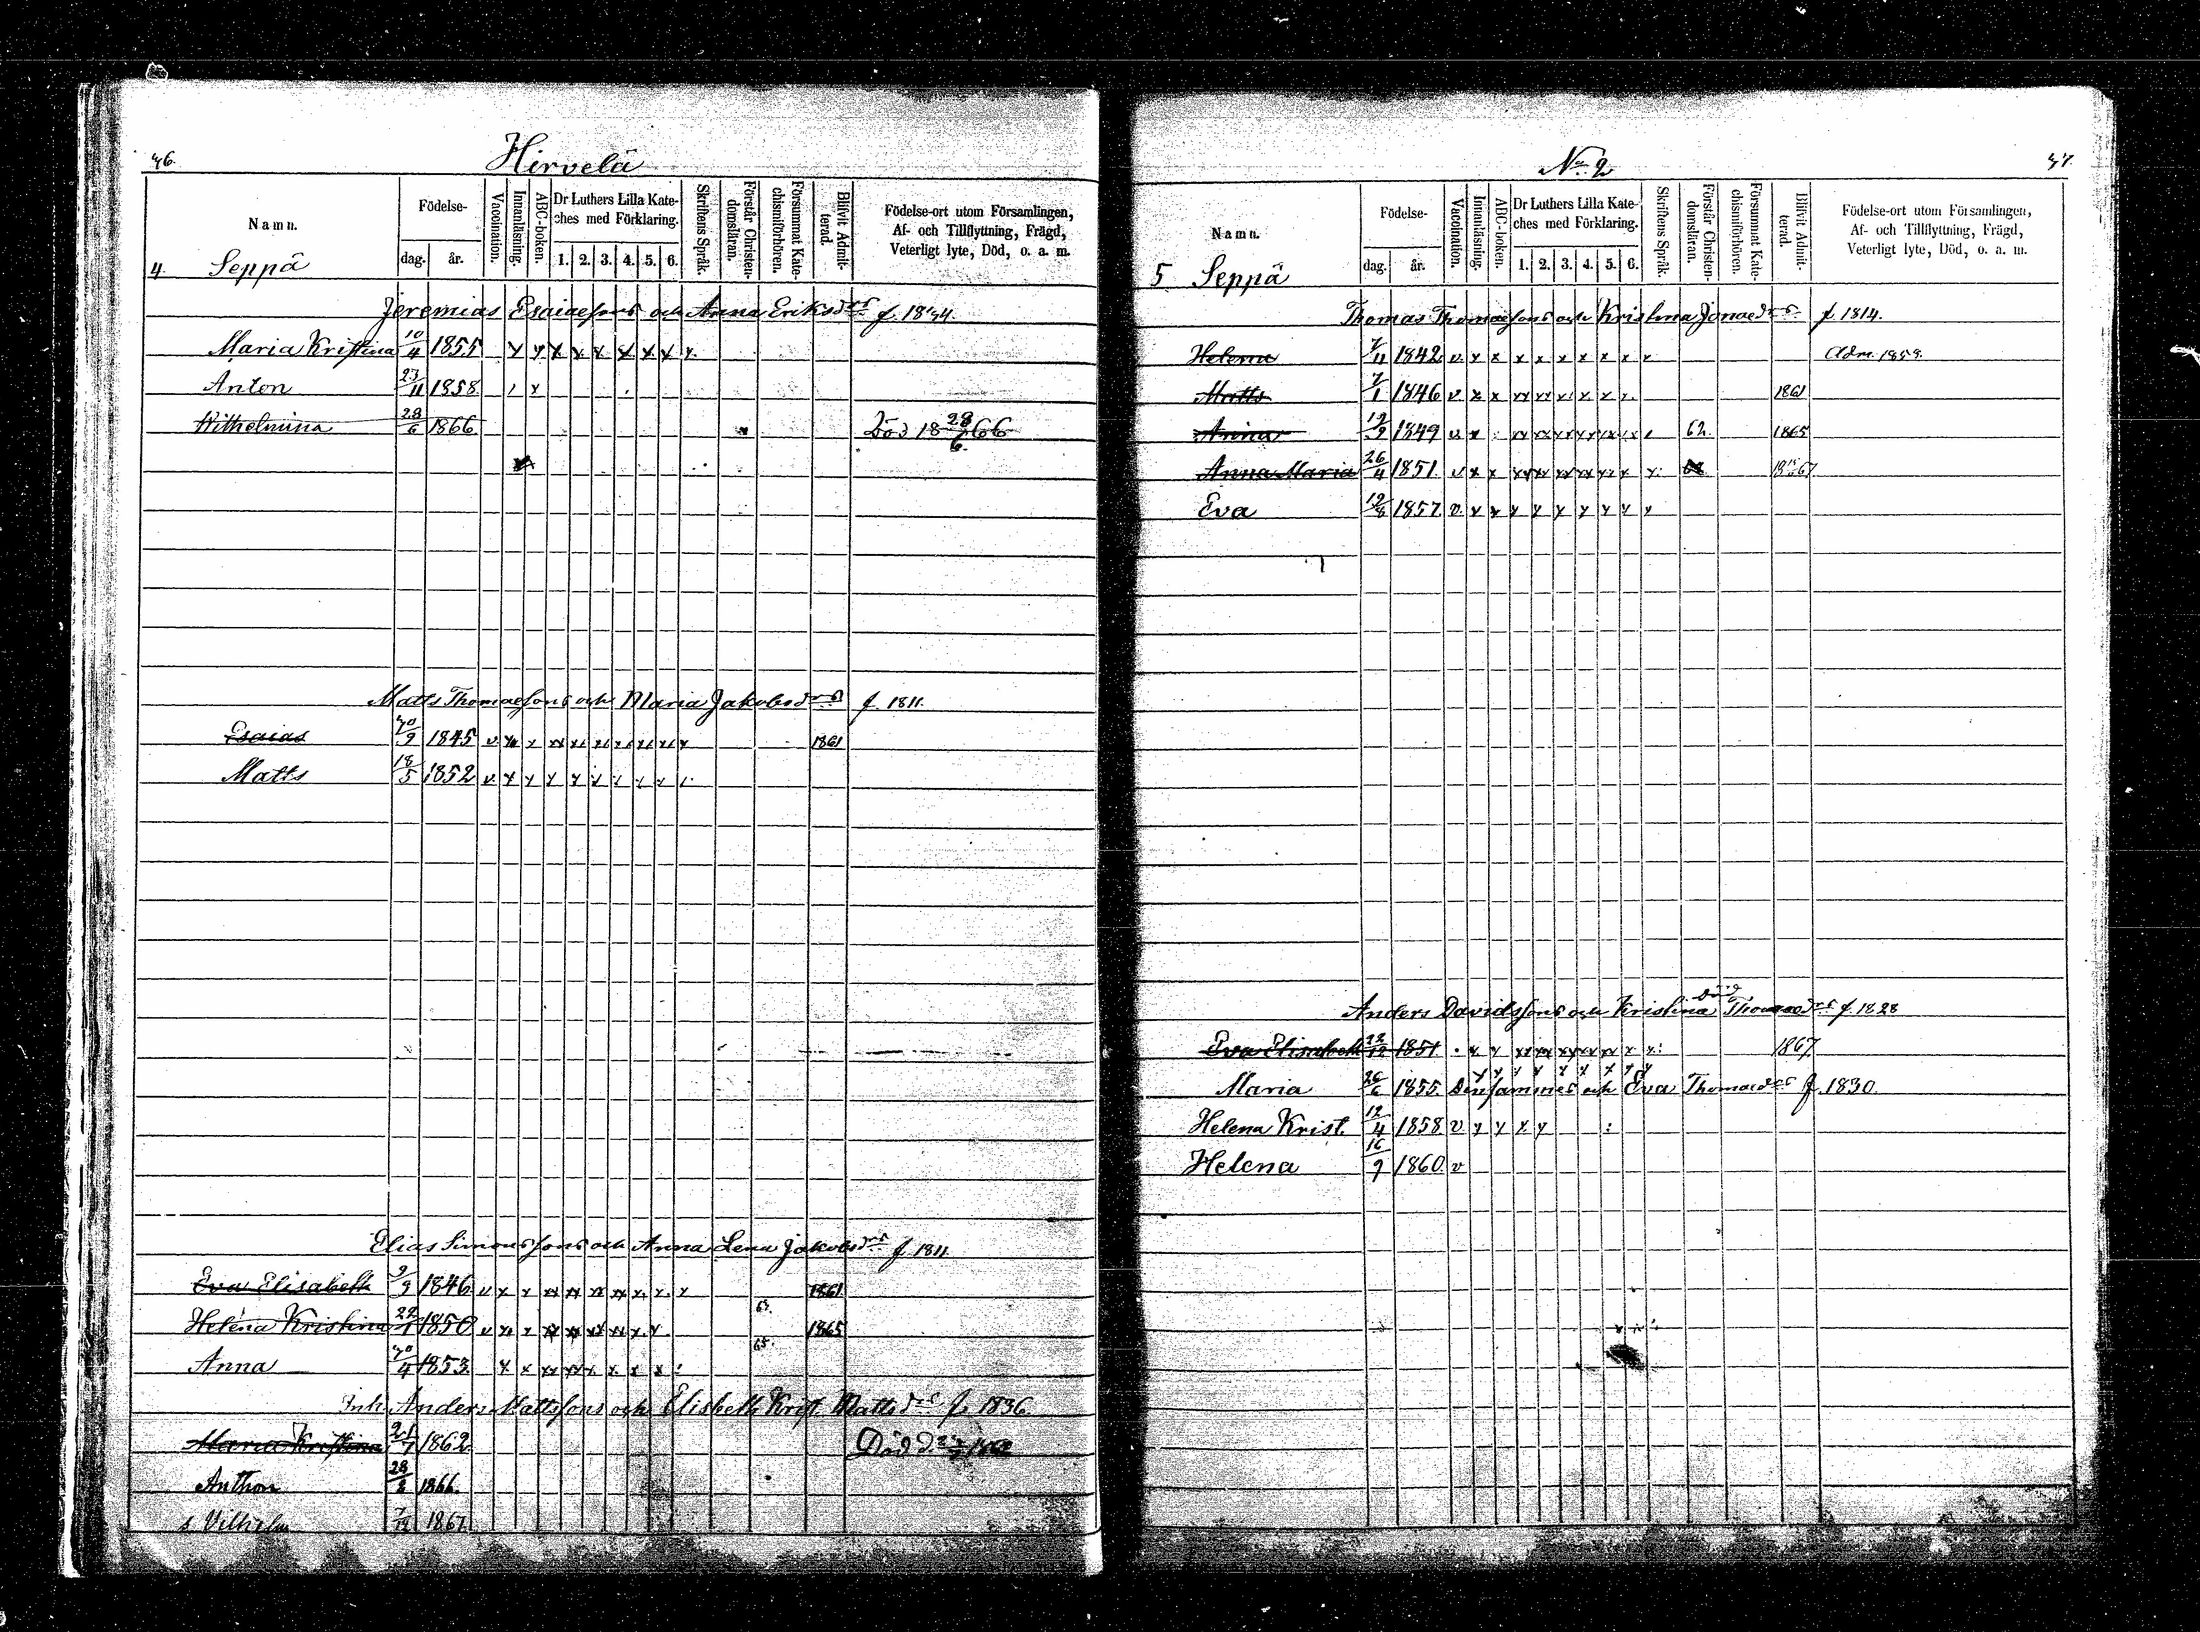 36.
Hirvelä
Namn.
Födelse-
dag.
år.
Vaccination.
Innanläsning.
ABC-boken.
Dr Luthers Lilla Kate-
ches med Förklaring.
1. 2. 3. 4. 5. 6.
Skriftens Språk.
Förstår Christen-
domsläran.
Försummat Kate-
chismiförhören.
Blifvit Admit-
terad.
Födelse-ort utom Församlingen,
Af- och Tillflyttning, Frägd,
Veterligt lyte, Död, o. a. m.
4. Seppä
Jeremias Esaiaesons och Anna Eriksdrs f. 1834.
Maria Kristina 10/4 1855 x x x x x x x x x
Anton 23/11 1858
Wilhelmina 28/6 1866 Död 18 28/6 66
Matts Thomaesons och Maria Jakobsdrs f. 1811.
Esaias 30/9 1845 1861
Matts 18/5 1852 v x x x x x x x x
Elias Simonssons och Anna Lena Jakobsdrs f. 1811.
Eva Elisabeth 9/9 1846 1861
Helena Kristina 1850 63. 1865
Anna 30/4 1853 65.
Inh. Anders Mattssons och Elisbeth Krist. Mattsdrs f. 1836.
Maria Kristina 1862 Död d.
Anthon 28/8 1866.
s. Vilhelm 7/12 1867.
37.
No 2
Namn.
Födelse-
dag.
år.
Vaccination.
Innanläsning.
ABC-boken.
Dr Luthers Lilla Kate-
ches med Förklaring.
1. 2. 3. 4. 5. 6.
Skriftens Språk.
Förstår Christen-
domsläran.
Försummat Kate-
chismiförhören.
Blifvit Admit-
terad.
Födelse-ort utom Församlingen,
Af- och Tillflyttning, Frägd,
Veterligt lyte, Död, o. a. m.
5 Seppä
Thomas Thomaesons och Kristina Jonaedrs f. 1814.
Helena 7/11 1842 v x x x x x x x x x Adm. 1859.
Matts 7/1 1846 1861
Anna 1849 62. 1865
Anna Maria 26/4 1851
Eva 1857 v x x x x x x x x x
död
Anders Davidssons och Kristina Thomaedrs f. 1828
Eva Elisabeth 22/12 1851 1867.
Maria 26/6 1855. Densammes och Eva Thomaedrs f. 1830.
Helena Krist. 12/4 1858 v x x x x
Helena 16/9 1860 v